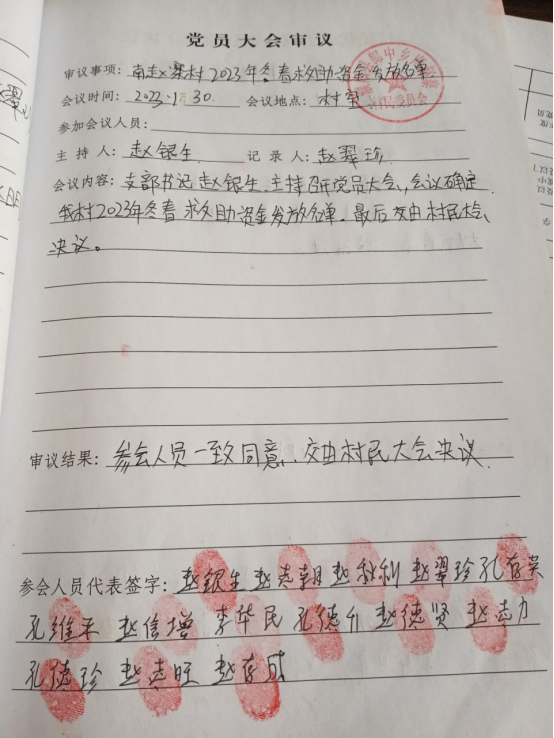 党员大会审议
审议事项：南赵寨村2023年冬春救助资金发放名单
会议时间：2023.1.30. 会议地点：村室
参加会议人员：
主持人：赵银生 记录人：赵翠珍
会议内容：支部书记赵银生主持召开党员大会，会议确定
我村2023年冬春求助资金发放名单。最后交由村民大会
决议。
审议结果：参会人员一致同意，交由村民大会决议
参会人员代表签字：赵银生 赵志朝 赵秋利 赵翠珍 孔存英
孔维平 赵信增 李华民 孔德 赵德贤 赵志力
孔德珍 赵志旺 赵存成